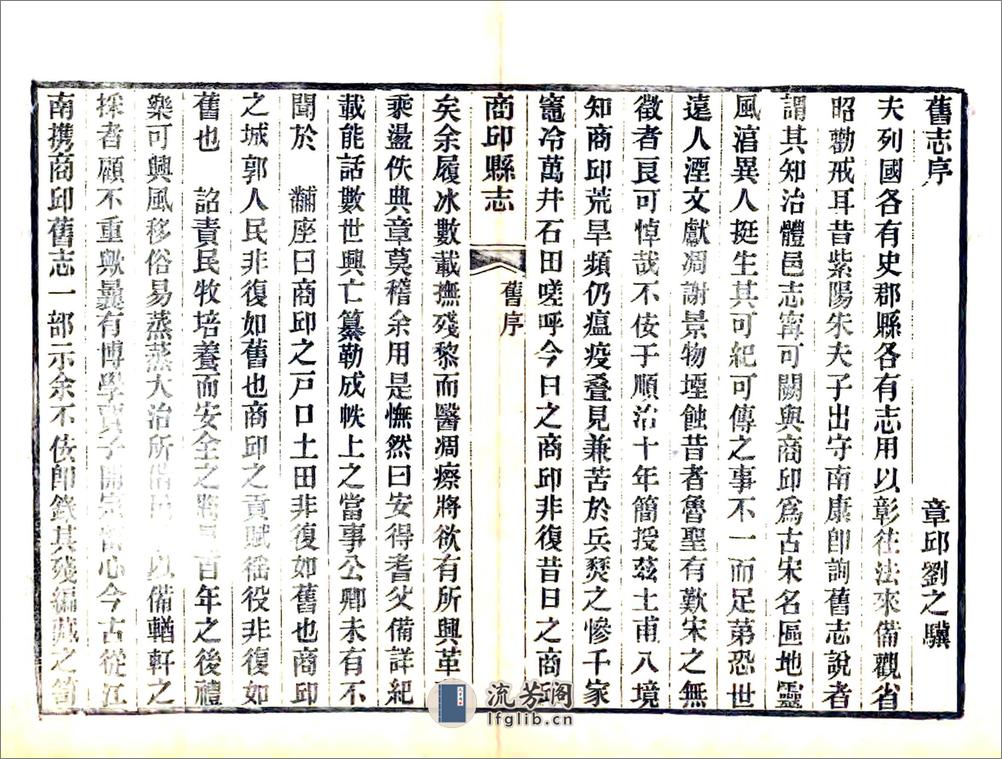 舊志序
章邱劉之驥
夫列國各有史郡縣各有志用以彰往法來備觀省
昭勸戒耳昔紫陽朱夫子出守南康卽詢舊志說者
謂其知治體邑志寧可闕與商邱爲古宋名區地靈
風湻異人挺生其可紀可傳之事不一而足第恐世
遠人湮文獻凋謝景物堙蝕昔者魯聖有歎宋之無
徵者良可悼哉不佞于順治十年簡授茲土甫八境
知商邱荒旱頻仍瘟疫叠見兼苦於兵燹之慘千家
竈冷萬井石田嗟呼今日之商邱非復昔日之商
商邱縣志
舊序
矣余履冰數載撫殘黎而醫凋瘵將欲有所興革
乘盪佚典章莫稽余用是憮然曰安得耆父備詳紀
載能話數世興亡纂勒成帙上之當事公卿未有不
聞於 黼座曰商邱之戸口土田非復如舊也商邱
之城郭人民非復如舊也商邱之貢賦徭役非復如
舊也 詔責民牧培養而安全之將見百年之後禮
樂可興風移俗易蒸蒸大治所 以備輶軒之
採者顧不重歟曩有博學 子 心今古從江
南携商邱舊志一部示余不佞卽錄其殘編藏之笥
流芳閣
lfglib.cn